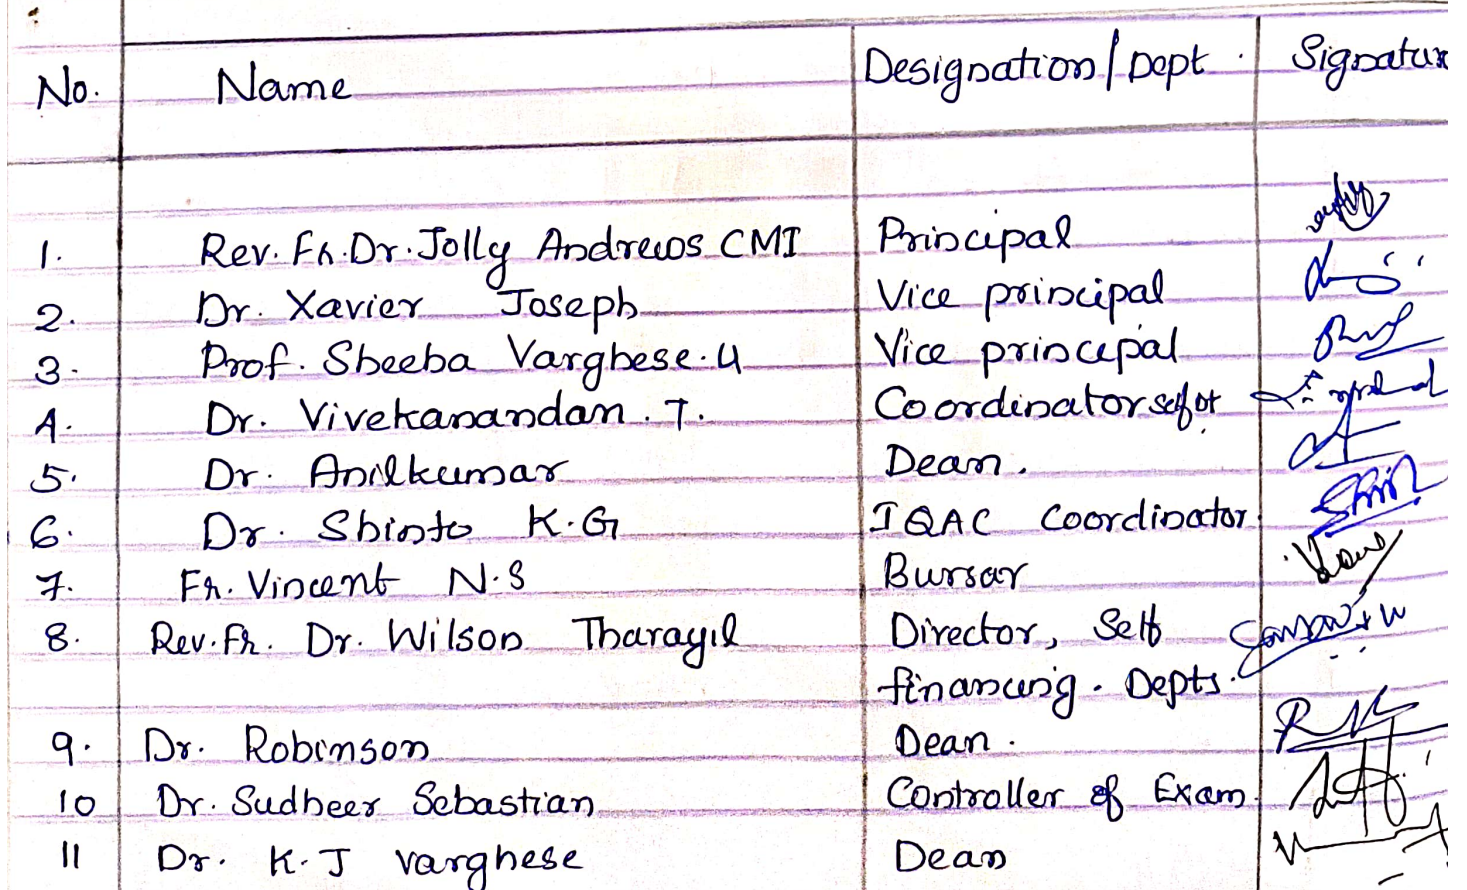 No. Name Designation/Dept. Signatur
1. Rev. Fr. Dr. Jolly Andrews CMI Principal
2. Dr. Xavier Joseph Vice principal
3. Prof. Sheeba Varghese. U Vice principal
4. Dr. Vivekanandan. T. Coordinator
5. Dr. Anilkumar Dean.
6. Dr. Shinto K.G IQAC Coordinator
7. Fr. Vincent N.S Bursar
8. Rev. Fr. Dr. Wilson Tharayil Director, Self
financing. Depts.
9. Dr. Robinson Dean.
10 Dr. Sudheer Sebastian Controller of Exam
11 Dr. K.J varghese Dean